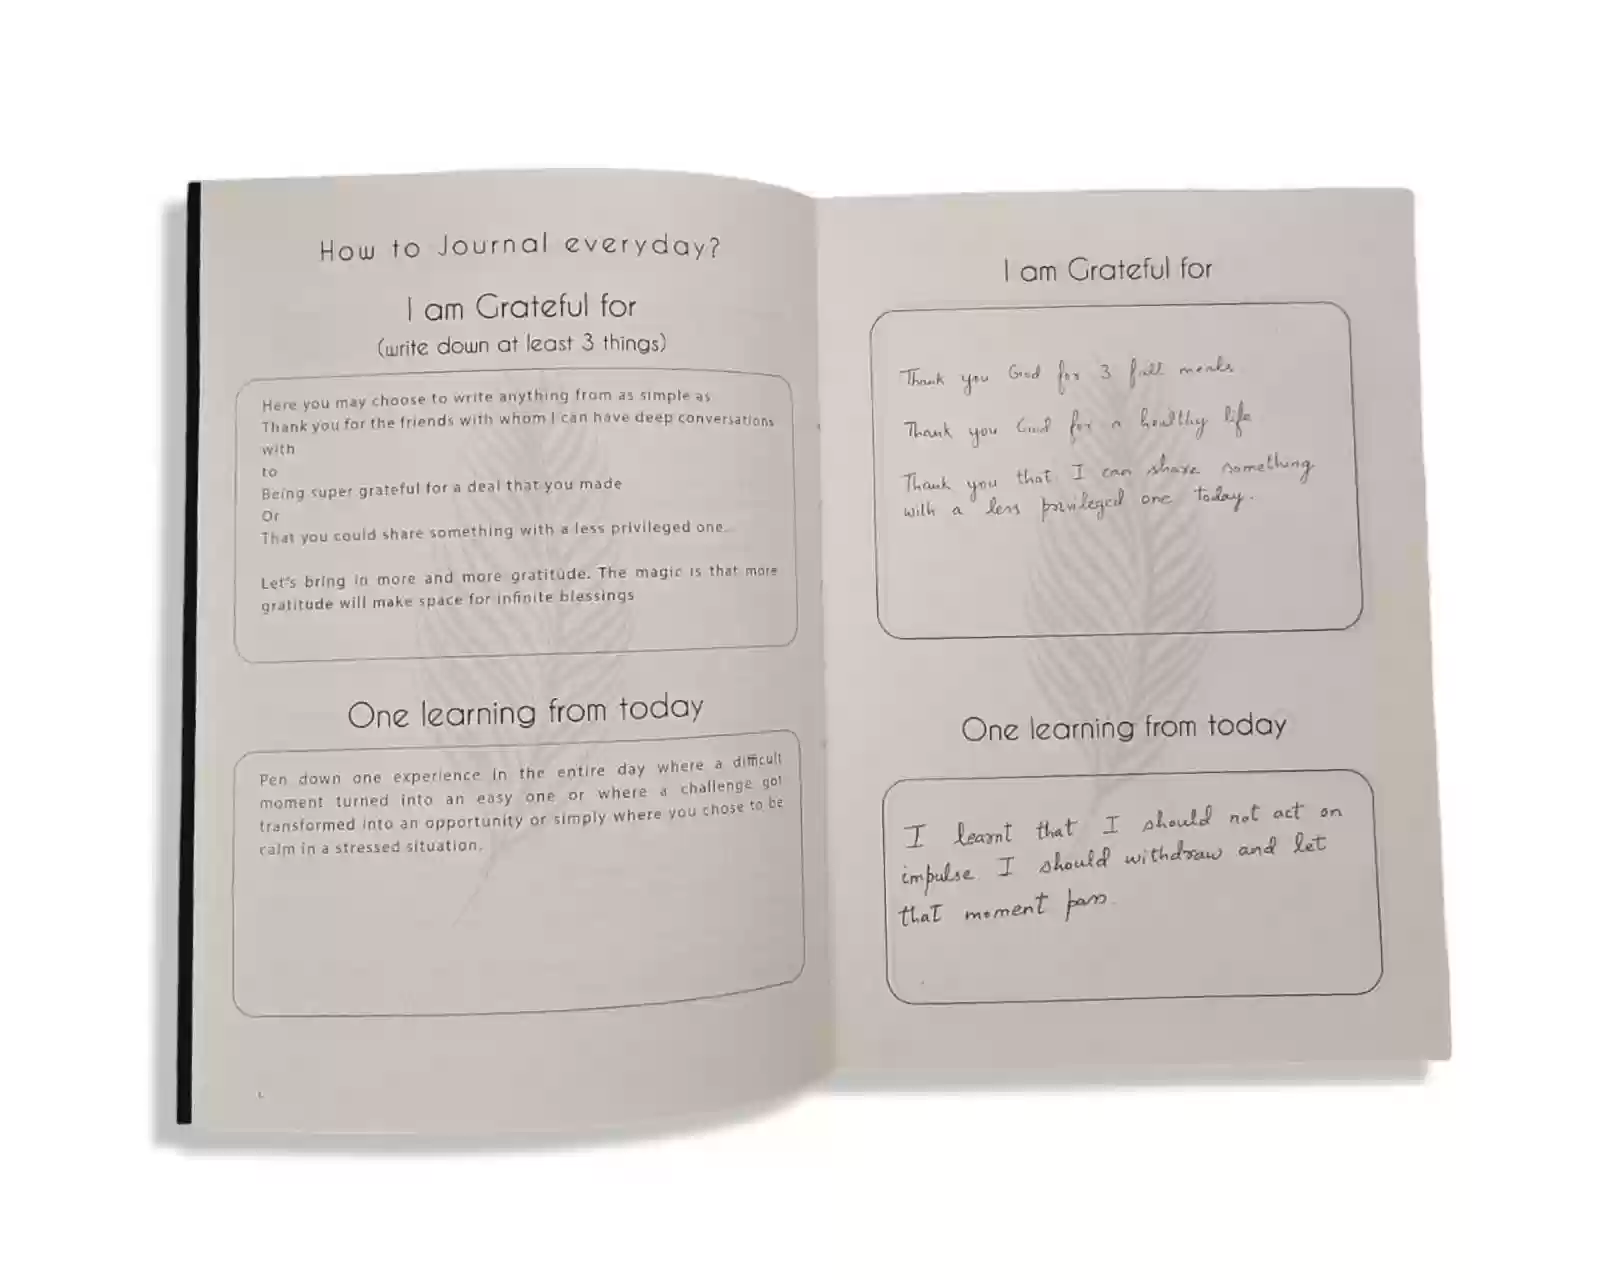 How to Journal everyday?
I am Grateful for
(write down at least 3 things)
Here you may choose to write anything from as simple as
Thank you for the friends with whom I can have deep conversations
with
to
Being super grateful for a deal that you made
Or
That you could share something with a less privileged one.
Let's bring in more and more gratitude. The magic is that more
gratitude will make space for infinite blessings
One learning from today
Pen down one experience in the entire day where a difficult
moment turned into an easy one or where a challenge got
transformed into an opportunity or simply where you chose to be
calm in a stressed situation.
I am Grateful for
Thank you God for 3 full meals
Thank you God for a healthy life
Thank you that I can share something
with a less privileged one today.
One learning from today
I learnt that I should not act on
impulse I should withdraw and let
that moment pass.